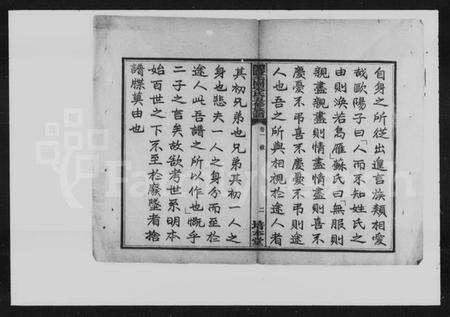 自身之所從出遑言族類相愛
哉歐陽子曰人而不知姓氏之
由則渙若鳥雁蘇氏曰無服則
親盡親盡則情盡情盡則喜不
慶憂不弔喜不慶憂不弔則途
人也吾之所與相視於途人者
卷一
二
培本堂
其初兄弟也兄弟其初一人之
身也悲夫一人之身分而至於
途人此吾譜之所以作也慨乎
二子之言矣故欲考世系明本
始百世之下不至於廢墜者捨
譜牒莫由也